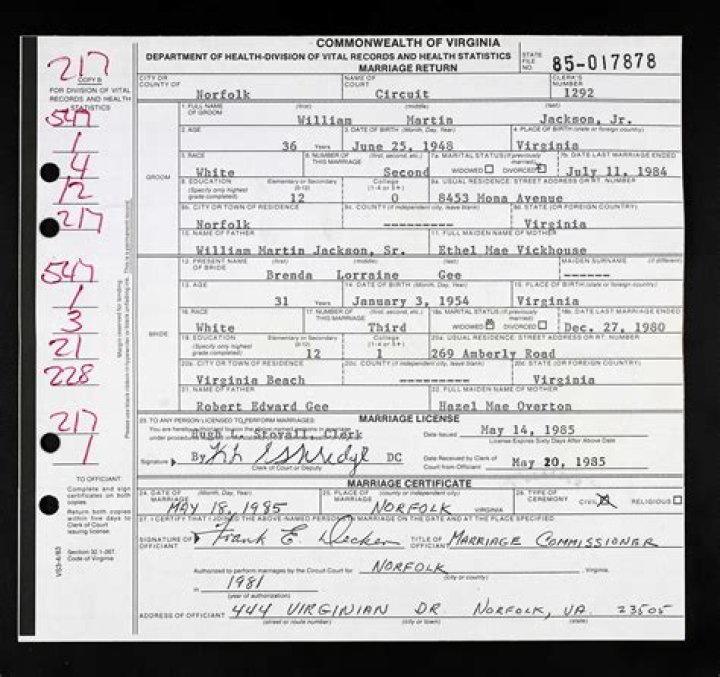 COMMONWEALTH OF VIRGINIA
DEPARTMENT OF HEALTH-DIVISION OF VITAL RECORDS AND HEALTH STATISTICS
MARRIAGE RETURN
STATE FILE NO. 85-017878
217
COPY B
FOR DIVISION OF VITAL
RECORDS AND HEALTH
STATISTICS
547
1
4
12
217
547
1
3
21
228
217
1
TO OFFICIANT
Complete and sign
certificates on both
copies.
Return both copies
within five days to
Clerk of Court
issuing license.
Section 32.1-267,
Code of Virginia
VS3-4/83
Margin reserved for binding.
CITY OR COUNTY OF Norfolk
NAME OF COURT Circuit
CLERK'S NUMBER 1292
GROOM
1. FULL NAME OF GROOM (first) (middle) (last)
William Martin Jackson, Jr.
2. AGE 36 Years
3. DATE OF BIRTH (Month, Day, Year) June 25, 1948
4. PLACE OF BIRTH (state or foreign country) Virginia
5. RACE White
6. NUMBER OF THIS MARRIAGE (first, second, etc.) Second
7a. MARITAL STATUS (if previously married) WIDOWED DIVORCED X
7b. DATE LAST MARRIAGE ENDED July 11, 1984
8. EDUCATION (Specify only highest grade completed) Elementary or Secondary (0-12) 12 College (1-4 or 5+) 0
9a. USUAL RESIDENCE STREET ADDRESS OR RT. NUMBER 8453 Mona Avenue
9b. CITY OR TOWN OF RESIDENCE Norfolk
9c. COUNTY (if independent city, leave blank) ---------
9d. STATE (OR FOREIGN COUNTRY) Virginia
10. NAME OF FATHER William Martin Jackson, Sr.
11. FULL MAIDEN NAME OF MOTHER Ethel Mae Vickhouse
BRIDE
12. PRESENT NAME OF BRIDE (first) (middle) (last) Brenda Lorraine Gee
MAIDEN SURNAME (if different) ------
13. AGE 31 Years
14. DATE OF BIRTH (Month, Day, Year) January 3, 1954
15. PLACE OF BIRTH (state or foreign country) Virginia
16. RACE White
17. NUMBER OF THIS MARRIAGE (first, second, etc.) Third
18a. MARITAL STATUS (if previously married) WIDOWED X DIVORCED
18b. DATE LAST MARRIAGE ENDED Dec. 27, 1980
19. EDUCATION (Specify only highest grade completed) Elementary or Secondary (0-12) 12 College (1-4 or 5+) 1
20a. USUAL RESIDENCE STREET ADDRESS OR RT. NUMBER 269 Amberly Road
20b. CITY OR TOWN OF RESIDENCE Virginia Beach
20c. COUNTY (if independent city, leave blank) ---------
20d. STATE (OR FOREIGN COUNTRY) Virginia
21. NAME OF FATHER Robert Edward Gee
22. FULL MAIDEN NAME OF MOTHER Hazel Mae Overton
MARRIAGE LICENSE
23. TO ANY PERSON LICENSED TO PERFORM MARRIAGES:
Hugh L. Stovall, Clerk
Date Issued May 14, 1985
License Expires Sixty Days After Above Date
Signature By DC
Clerk of Court or Deputy
Date Received by Clerk of Court from Officiant May 20, 1985
MARRIAGE CERTIFICATE
24. DATE OF MARRIAGE (Month, Day, Year) MAY 18, 1985
25. PLACE OF MARRIAGE (county or independent city) NORFOLK VIRGINIA
26. TYPE OF CEREMONY CIVIL X RELIGIOUS
27. I CERTIFY THAT I JOINED THE ABOVE-NAMED PERSONS IN MARRIAGE ON THE DATE AND AT THE PLACE SPECIFIED.
SIGNATURE OF OFFICIANT Frank E. Decker
TITLE OF OFFICIANT MARRIAGE COMMISSIONER
Authorized to perform marriages by the Circuit Court for NORFOLK, Virginia,
(city or county)
in 1981
(year of authorization)
ADDRESS OF OFFICIANT 444 VIRGINIAN DR NORFOLK, VA. 23505
(street or route number) (city or town) (state)